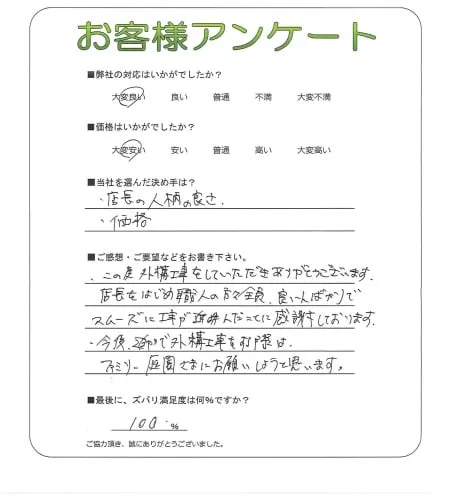 お客様アンケート
■弊社の対応はいかがでしたか？
大変良い 良い 普通 不満 大変不満
■価格はいかがでしたか？
大変安い 安い 普通 高い 大変高い
■当社を選んだ決め手は？
・店長の人柄の良さ、
・価格
■ご感想・ご要望などをお書き下さい。
・この度外構工事をしていただきありがとうございます。
店長をはじめ職人の方々全員、良い人ばかりで
スムーズに工事が進んだことに感謝しております。
・今後、で外構工事をする際は、
ファミリー庭園さまにお願いしようと思います。
■最後に、ズバリ満足度は何%ですか？
100 %
ご協力頂き、誠にありがとうございました。